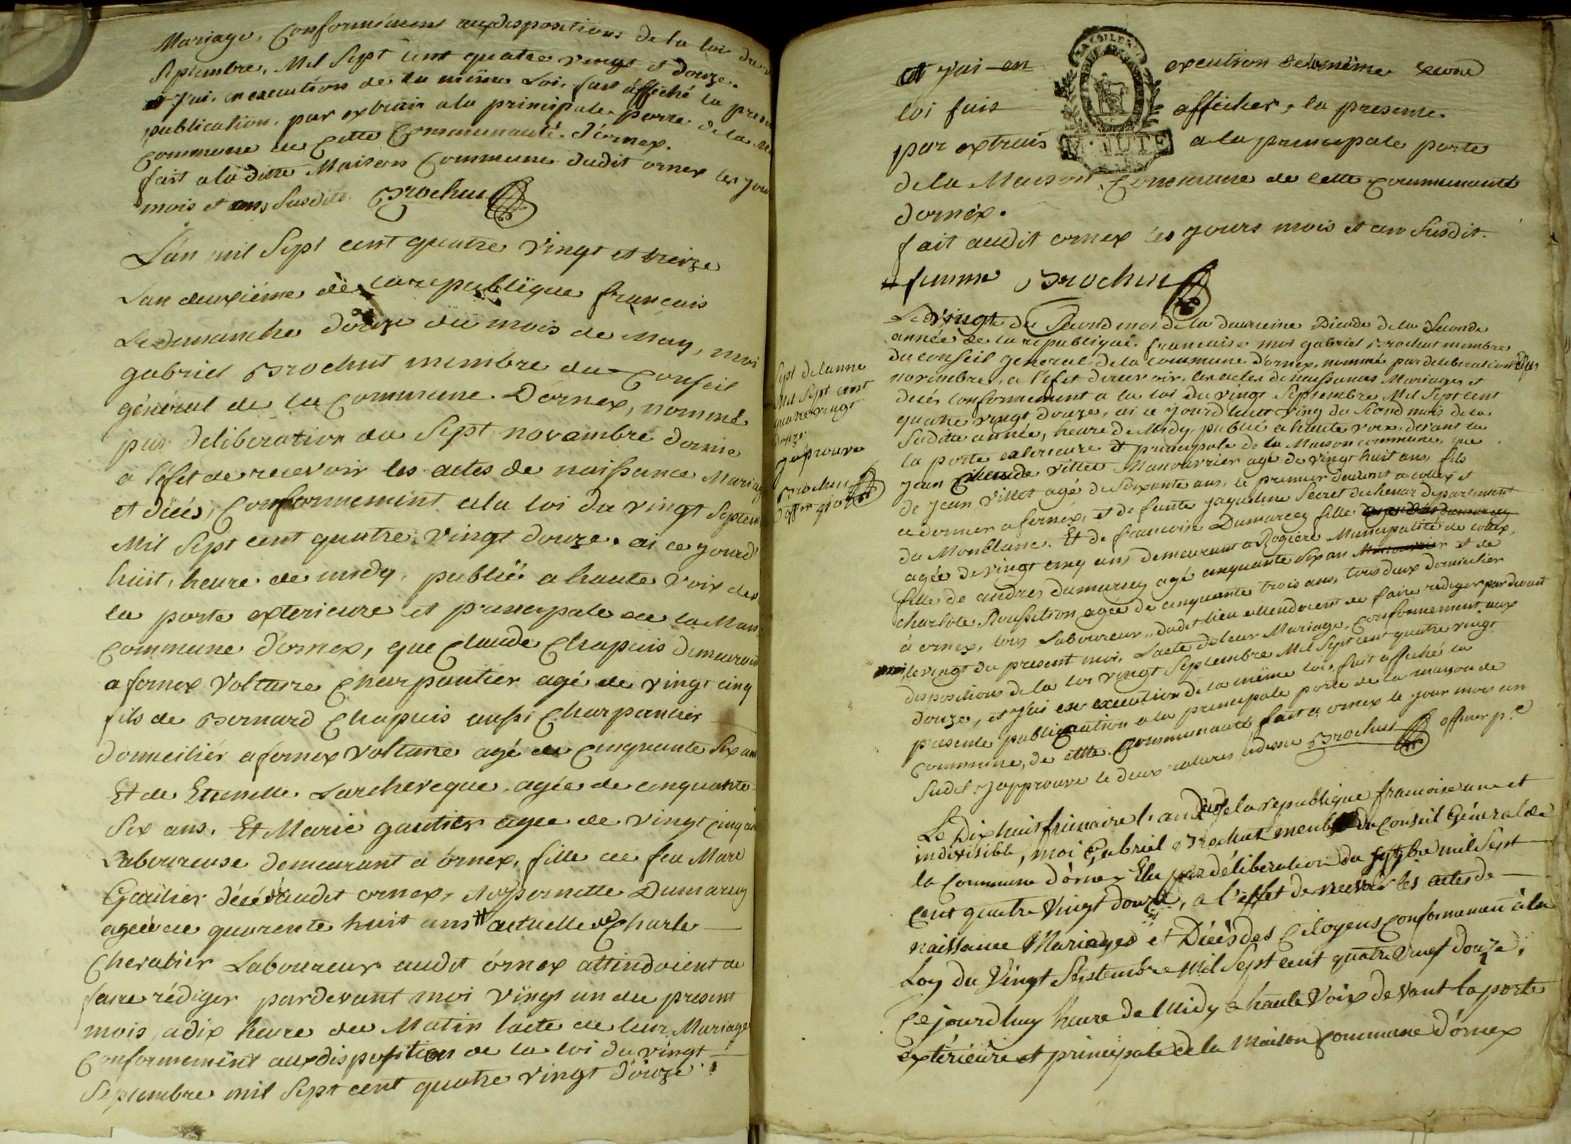 Mariage, Conformément aux dispositions de la loi du
Septembre, Mil Sept Cent quatre vingt et douze.
et J'ai, en execution de la même Loi, fait affiché la
publication, par extrait a la principale porte de la
Commune de Cette Communauté d'ornex.
fait a la ditte Maison Commune dudit ornex les jour
mois et an Susdits Brochut
L'an mil Sept cent quatre vingt et treize
Lan deuxiéme de la republique francais
Le dimanche douze du mois de May, moi
gabriel Brochut membre du Conseil
général de la Commune D'ornex, nommé
par deliberation du Sept novembre dernier
a l'efet de recevoir les actes de naissance Mariage
et décés, Conformement a la loi du vingt Septem
Mil Sept cent quatre vingt douze. ai ce yourd'
huit, heure de midy, publié a haute voix
la porte exterieure et principale de la Mais
Commune d'ornex, que Claude Chapuis demeurant
a fornex voltaire Charpantier agé de vingt cinq
fils de Bernard Chapuis aussi Charpantier
domicilier a fornex voltaire agé de Cinquante Six ans
Et de Larcheveque agée de cinquante
Six ans. Et Marie gautier agee de vingt cinq ans
Laboureuse demeurant a ornex, fille de feu Marc
Gautier décédé audit ornex, et Pernette Dumarcey
agée de quarente huit ans # actuelle de Charle
Chevalier Laboureur audit ornex attendoient de
faire rédiger pardevant moi vingt un du present
mois, a dix heure du Matin lacte de leur Mariage
Conformement aux disposition de la loi du vingt
Septembre mil Sept cent quatre vingt douze.
et j'ai en execution de la même
loi fais afficher, la presente
par extrais a la principale porte
MINUTE
de la Maison Commune de cette Communauté
dornex.
fait audit ornex les yours mois et an Susdit.
# femme Brochut
Le vingt du Second mois de la deuxieme Dicade de la Seconde
année de la republique francaise moi gabriel Brochut membre
du conseil general de la commune d'ornex, nommé par deliberation
novembre, a l'efet de recevoir les actes de naissances Mariages et
decés conformement a la loi du vingt Septembre Mil Sept cent
quatre vingt douze, ai ce yourd'huit ving du Second mois de la
Susdite année, heure de Midy publié a haute voix devant la
la porte exterieure et principale de la Maison commune, que
jean villet Manouvrier agé de vingt huit ans fils
de jean villet agé de Soixante ans, le premier demeurant a colex et
ce dernier a fornex, et de feunte jaqueline departement
du Monblanc. Et de francoise Dumarcey fille
agée de vingt cinq ans demeurant a Municipalité de colex,
fille de andres dumarcey agé cinquante Six an et de
charlote agée de cinquante trois ans, tous deux domicilier
à ornex, tous Laboureur, dudit lieu attendoient de faire rediger par devant
moi le vingt du present moi, Lacte de leur Mariage, conformement aux
dispositions de la loi vingt Septembre Mil Sept cent quatre vingt
douze, et j'ai en execution de la même loi, fait affiché la
presente publication a la principale porte de la maison de
commune, de cette communauté fait a ornex le jour mois an
Susdit et japprouve le deux ratures cidesus Brochut officier p.c
Sept de lanne
Mil Sept cent
quatre vingt
douze
japrouve
Brochut
Le Dix huit frimaire l'an deux de la republique francoise une et
indivisible, moi Gabriel Brochut membre du Conseil Général de
la Commune d'ornex Elu par déliberation du sept 9bre mil Sept
Cent quatre Vingt douze, à l'effet de recevoir les actes de
naissance Mariages et Décès des Citoyens Conformement à la
Loy du Vingt Septembre Mil Sept cent quatre Vingt douze,
Ce jourdhuy heure de Midy à haute Voix devant la porte
extérieure et principale de la Maison Commune d'ornex